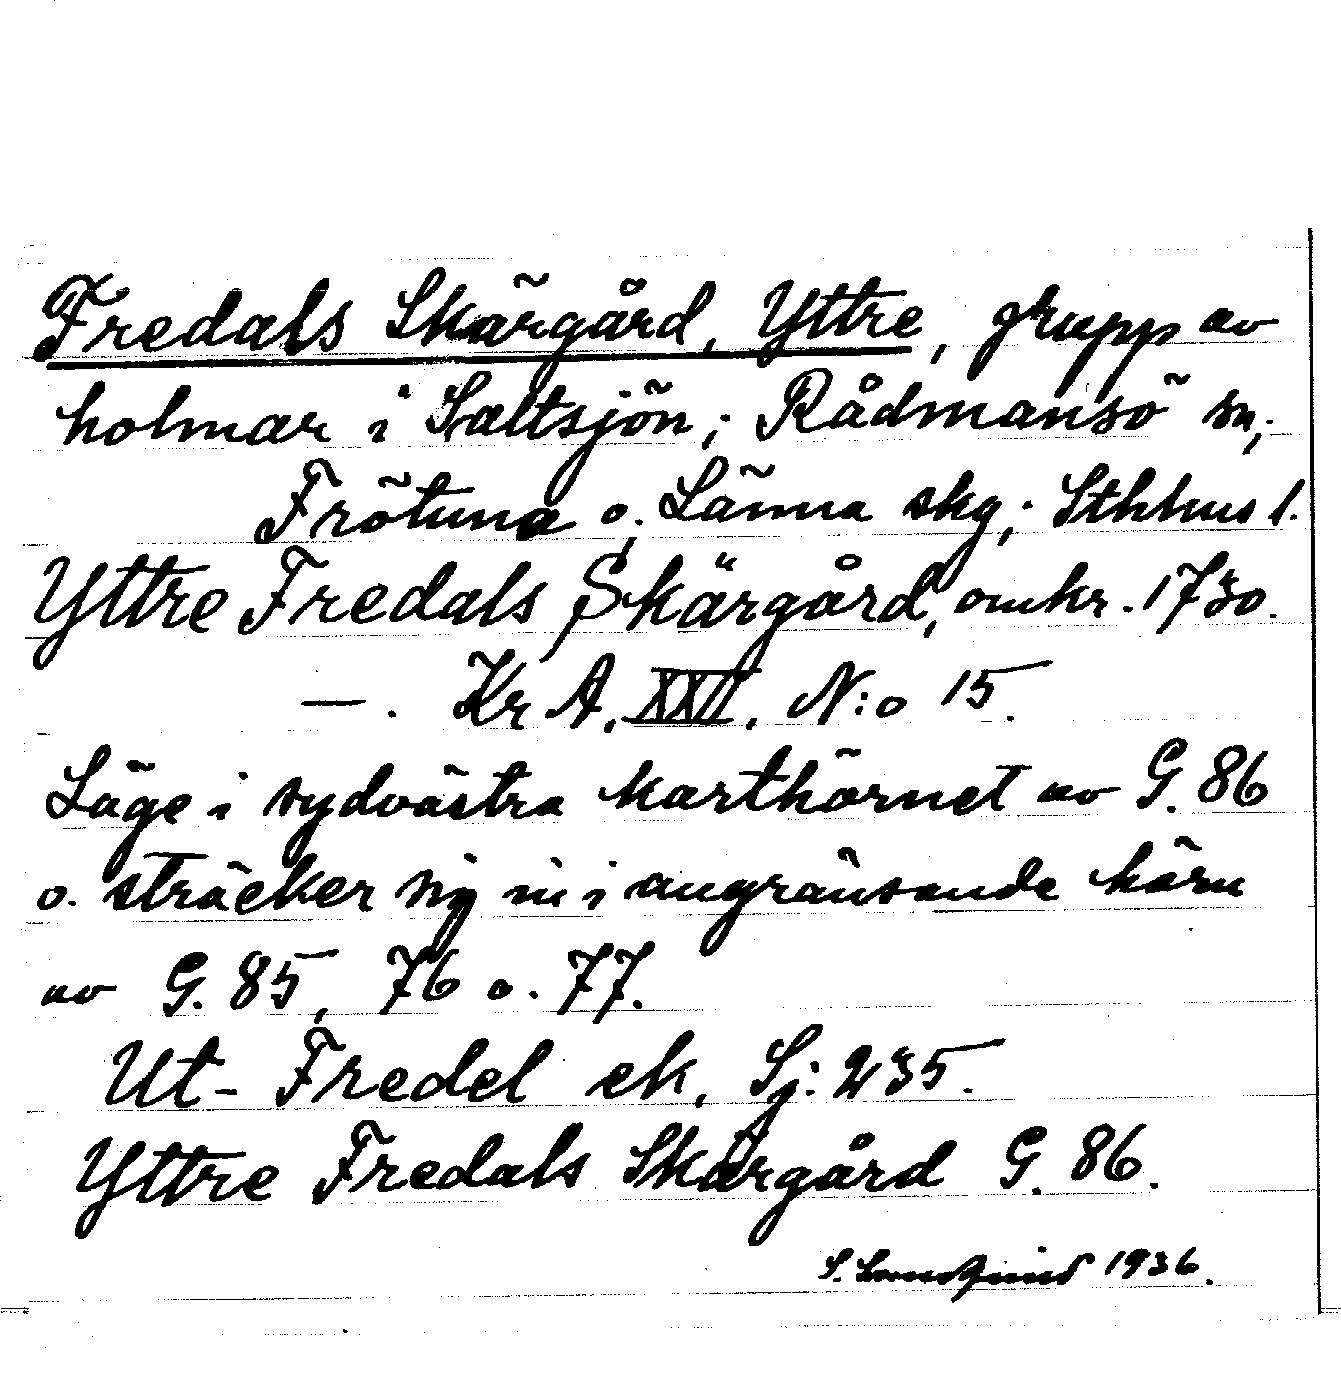 Fredals Skärgård, Yttre, grupp av
holmar i Saltsjön; Rådmansö sn;
Frötuna o. Länna skg; Sthhus l.
Yttre Fredals Skärgård, omkr. 1730.
—. Kr A, XXII, N:o 15.
Läge i sydvästra karthörnet av G. 86
o. sträcker sig in i angränsande hörn
av G. 85, 76 o. 77.
Ut-Fredel ek, Sj: 235.
Yttre Fredals Skärgård G. 86.
S. 1936.